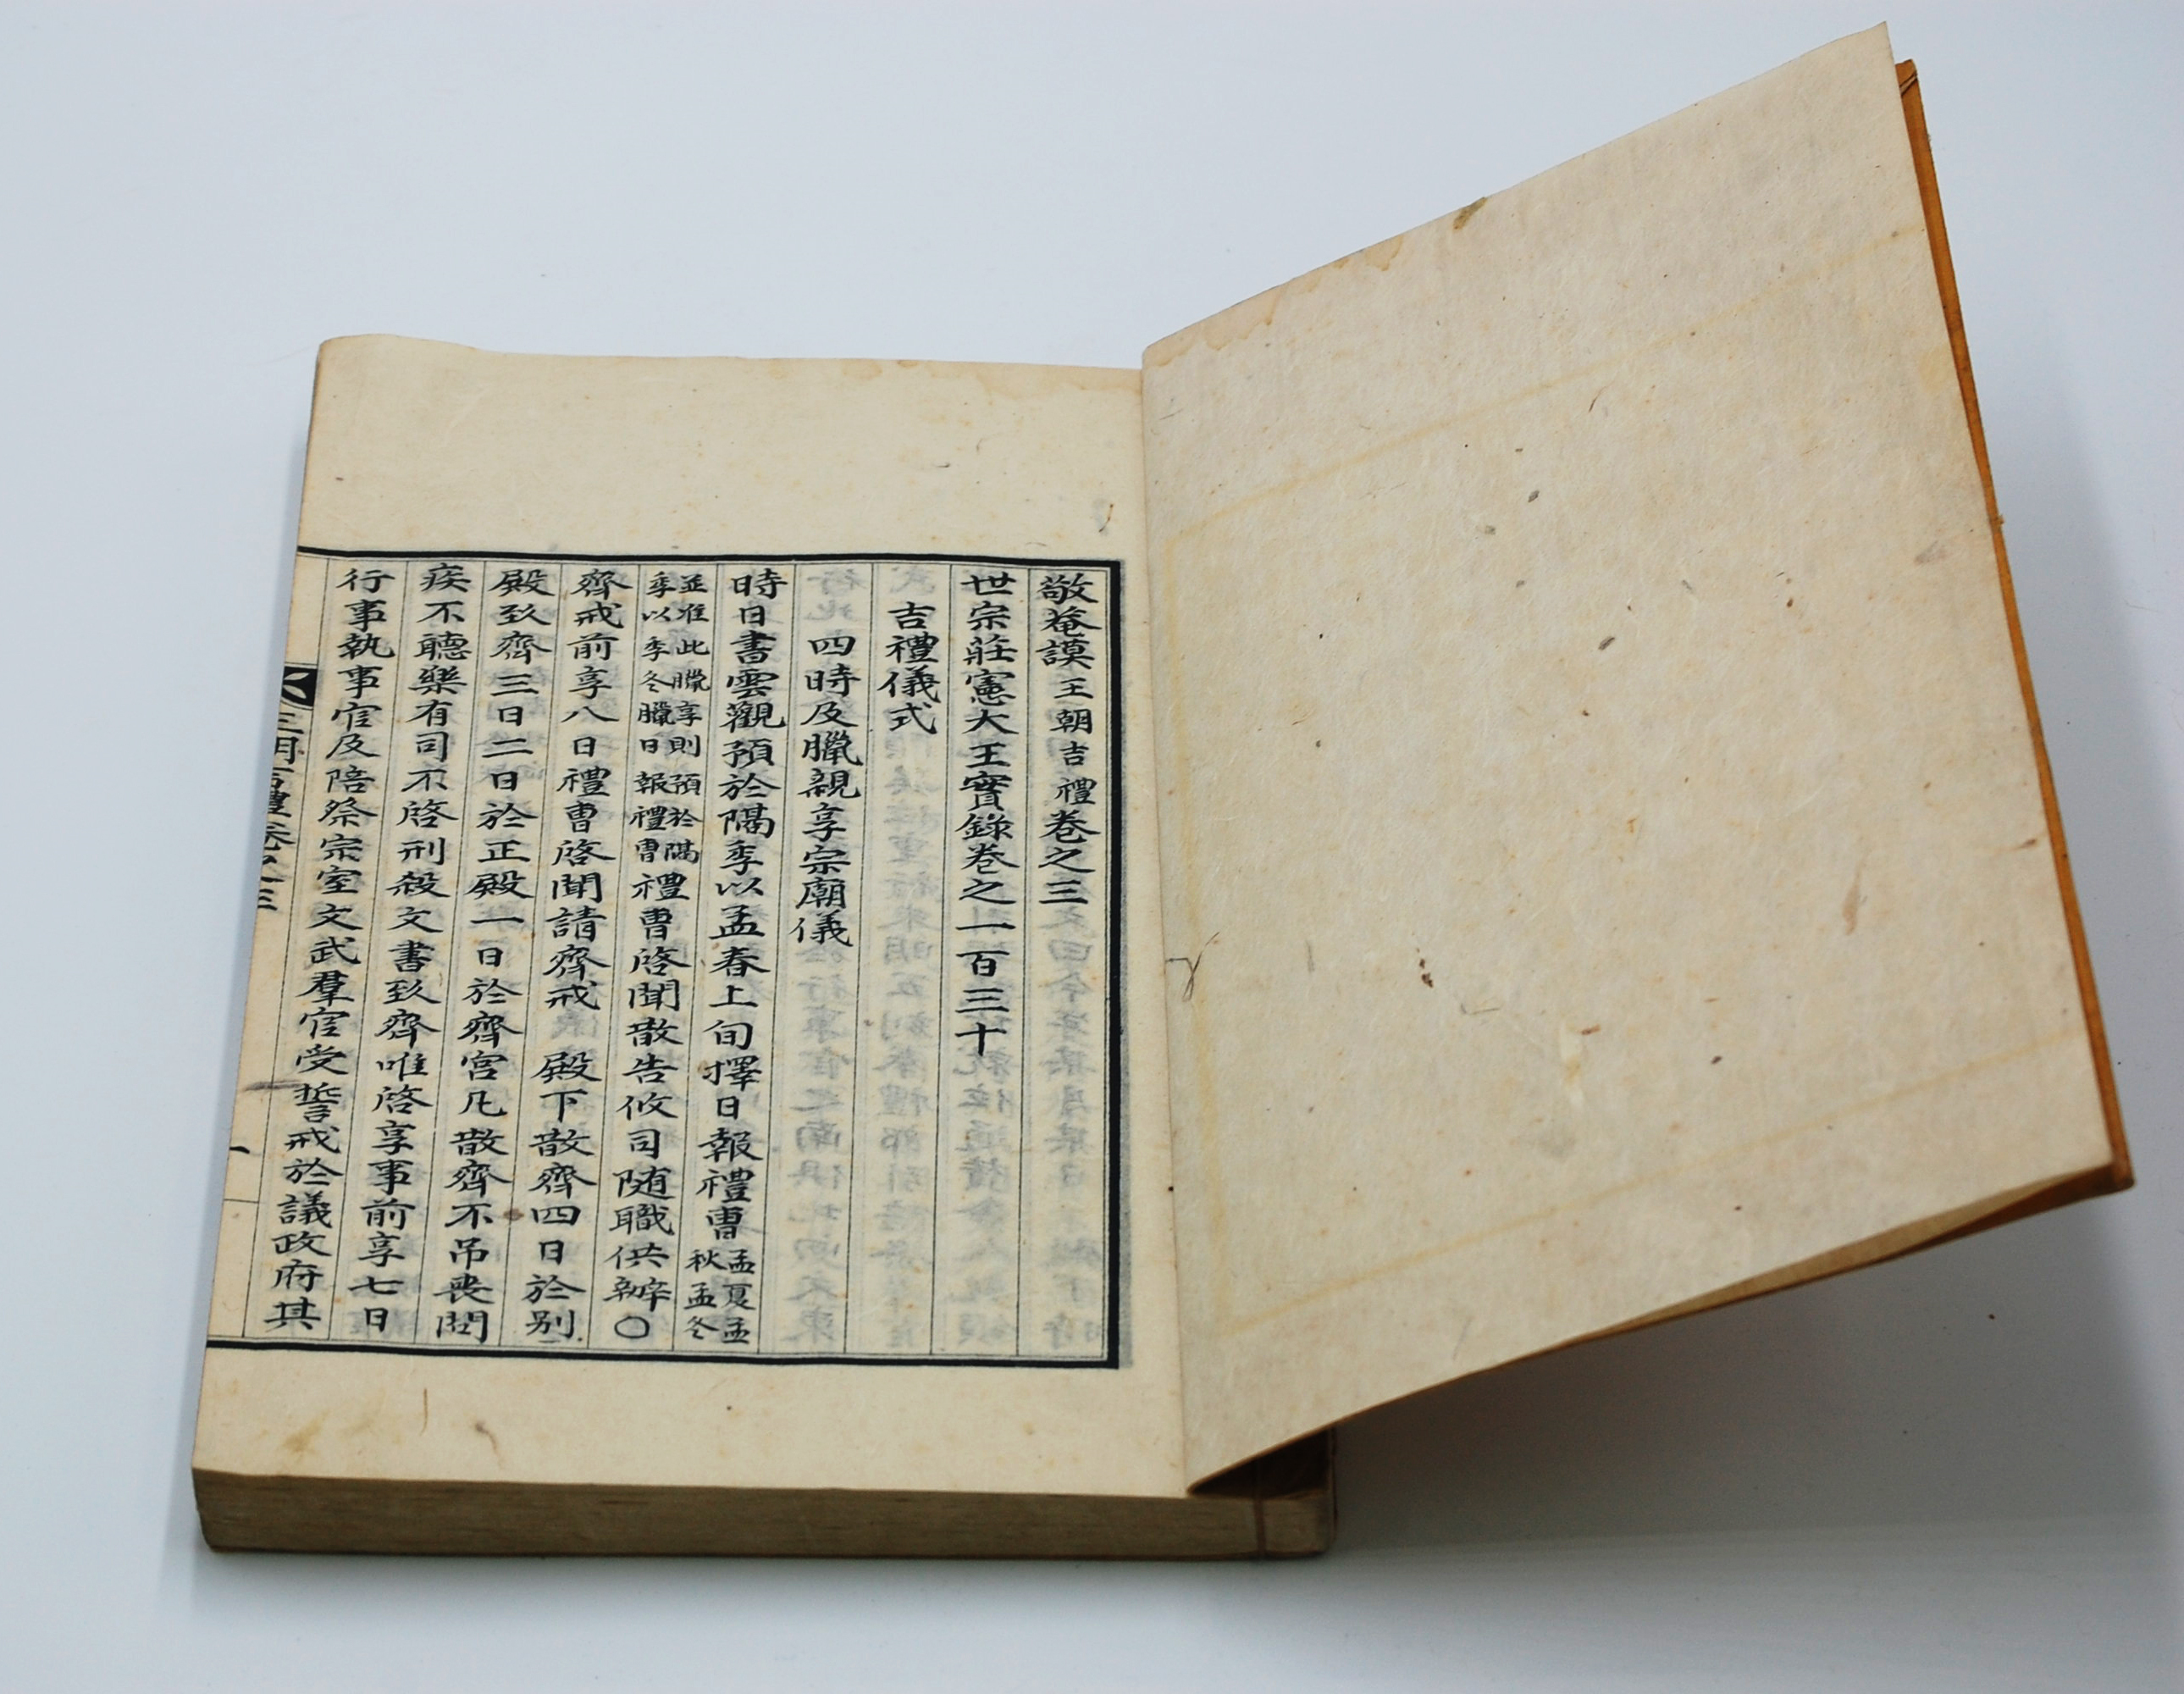 敬菴謨王朝吉禮卷之三
世宗莊憲大王實錄卷之一百三十
吉禮儀式
四時及臘親享宗廟儀
時日書雲觀預於隔季以孟春上旬擇日報禮曹孟夏孟秋孟冬
並准此臘享則預於隔季以季冬臘日報禮曹禮曹啓聞散告攸司随職供辦○
齊戒前享八日禮曹啓聞請齊戒 殿下散齊四日於别
殿致齊三日二日於正殿一日於齊宮凡散齊不吊喪問
疾不聽樂有司不啓刑殺文書致齊唯啓享事前享七日
行事執事官及陪祭宗室文武羣官受誓戒於議政府其
一